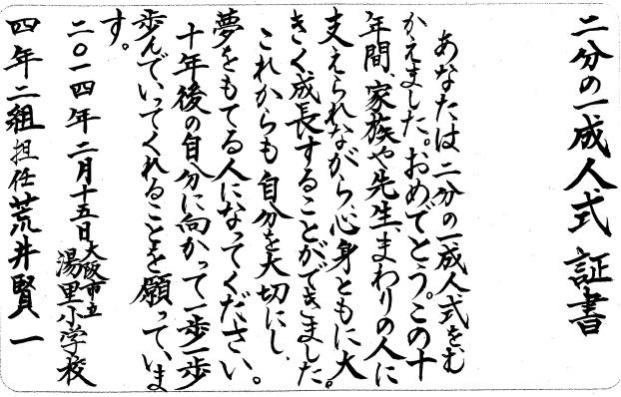 二分の一成人式 証書
あなたは二分の一成人式をむ
かえました。おめでとう。この十
年間、家族や先生、まわりの人に
支えられながら、心身ともに大
きく成長することができました。
これからも自分を大切にし、
夢をもてる人になってください。
十年後の自分に向かって一歩一歩
歩んでいってくれることを願っていま
す。
二〇一四年二月十五日
大阪市立
湯里小学校
四年二組担任荒井賢一